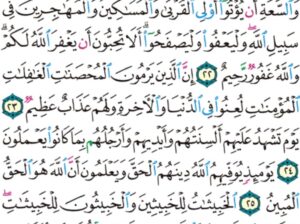 وَالسَّعَةِ أَن يُؤْتُوٓا۟ أُو۟لِى ٱلْقُرْبَىٰ وَٱلْمَسَٰكِينَ وَٱلْمُهَٰجِرِينَ فِى
سَبِيلِ ٱللَّهِ ۖ وَلْيَعْفُوا۟ وَلْيَصْفَحُوٓا۟ ۗ أَلَا تُحِبُّونَ أَن يَغْفِرَ ٱللَّهُ لَكُمْ ۗ
وَٱللَّهُ غَفُورٌ رَّحِيمٌ ٢٢ إِنَّ ٱلَّذِينَ يَرْمُونَ ٱلْمُحْصَنَٰتِ ٱلْغَٰفِلَٰتِ
ٱلْمُؤْمِنَٰتِ لُعِنُوا۟ فِى ٱلدُّنْيَا وَٱلْـَٔاخِرَةِ وَلَهُمْ عَذَابٌ عَظِيمٌ ٢٣
يَوْمَ تَشْهَدُ عَلَيْهِمْ أَلْسِنَتُهُمْ وَأَيْدِيهِمْ وَأَرْجُلُهُم بِمَا كَانُوا۟ يَعْمَلُونَ
٢٤ يَوْمَئِذٍ يُوَفِّيهِمُ ٱللَّهُ دِينَهُمُ ٱلْحَقَّ وَيَعْلَمُونَ أَنَّ ٱللَّهَ هُوَ ٱلْحَقُّ
ٱلْمُبِينُ ٢٥ ٱلْخَبِيثَٰتُ لِلْخَبِيثِينَ وَٱلْخَبِيثُونَ لِلْخَبِيثَٰتِ ۖ